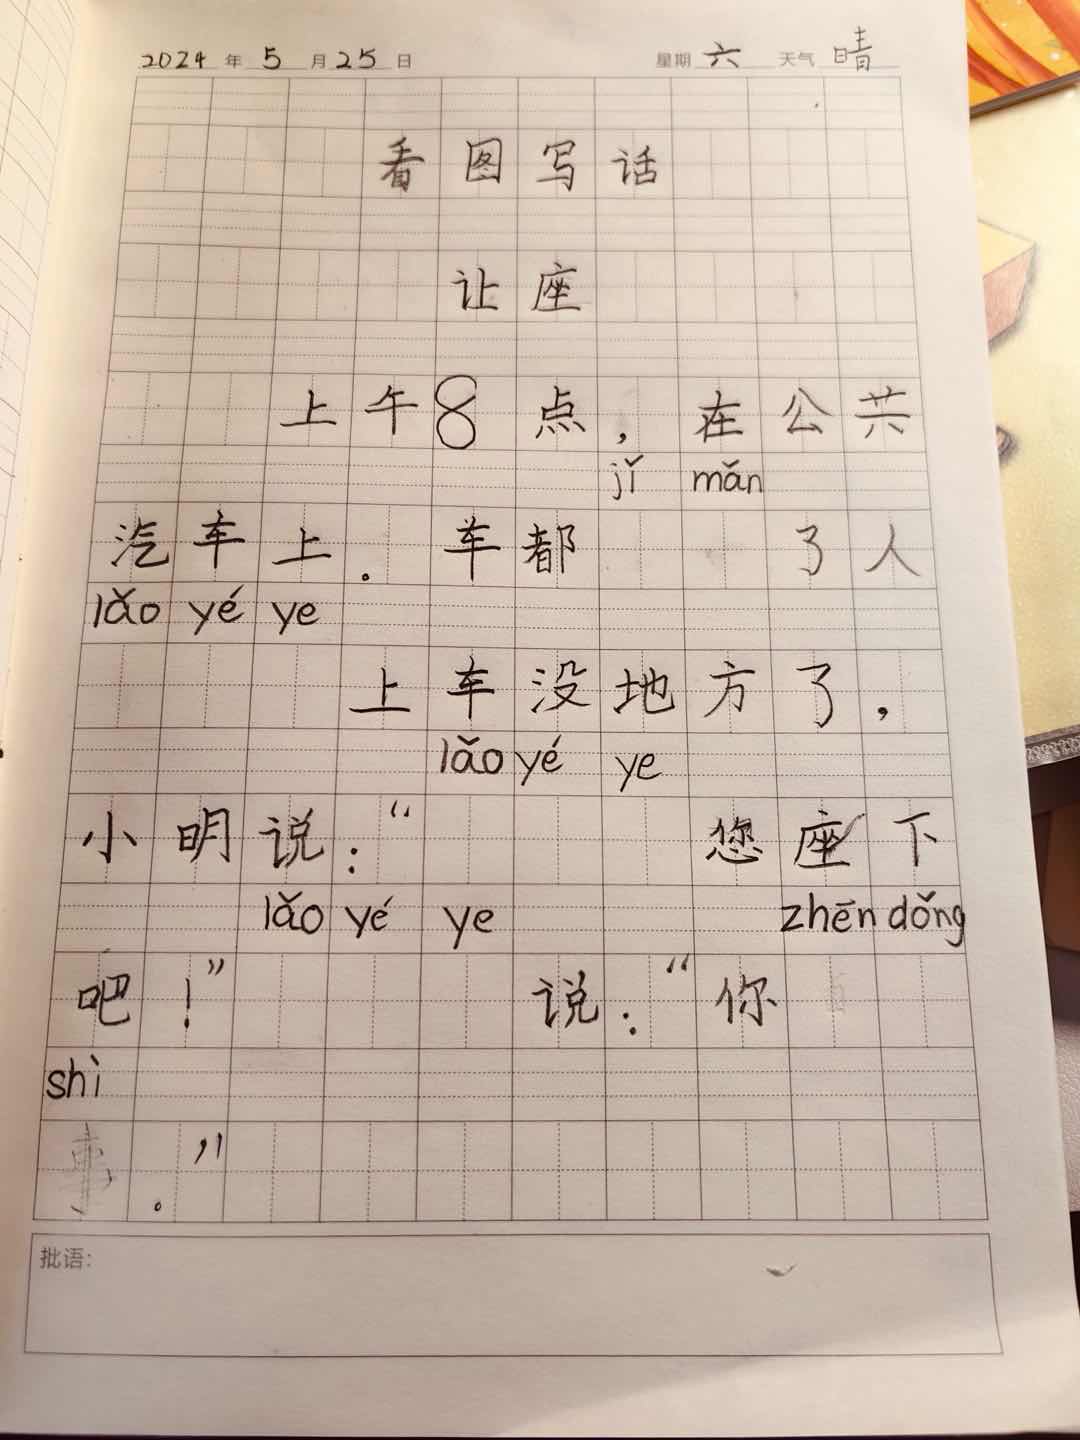 2024 年 5 月 25 日 星期 六 天气 晴
看图写话
让座
上午8点，在公共
jǐ mǎn
汽车上。车都 了人
lǎo yé ye
上车没地方了，
lǎo yé ye
小明说：“ 您座下
lǎo yé ye zhēn dǒng
吧！” 说：“你
shì
事。”
批语：